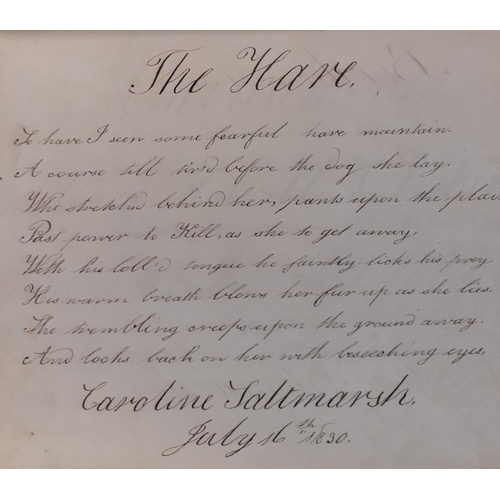 The Hare.
So have I seen some fearful hare maintain.
A course till tir'd before the dog she lay.
Who stretch'd behind her, pants upon the plain
Past power to Kill, as she to get away.
With his loll'd tongue he faintly licks his prey
His warm breath blows her fur up as she lies.
She trembling creeps upon the ground away.
And looks back on her with beseeching eyes.
Caroline Saltmarsh.
July 16th 1830.